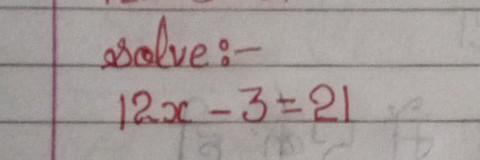 solve:-
12x - 3 = 21